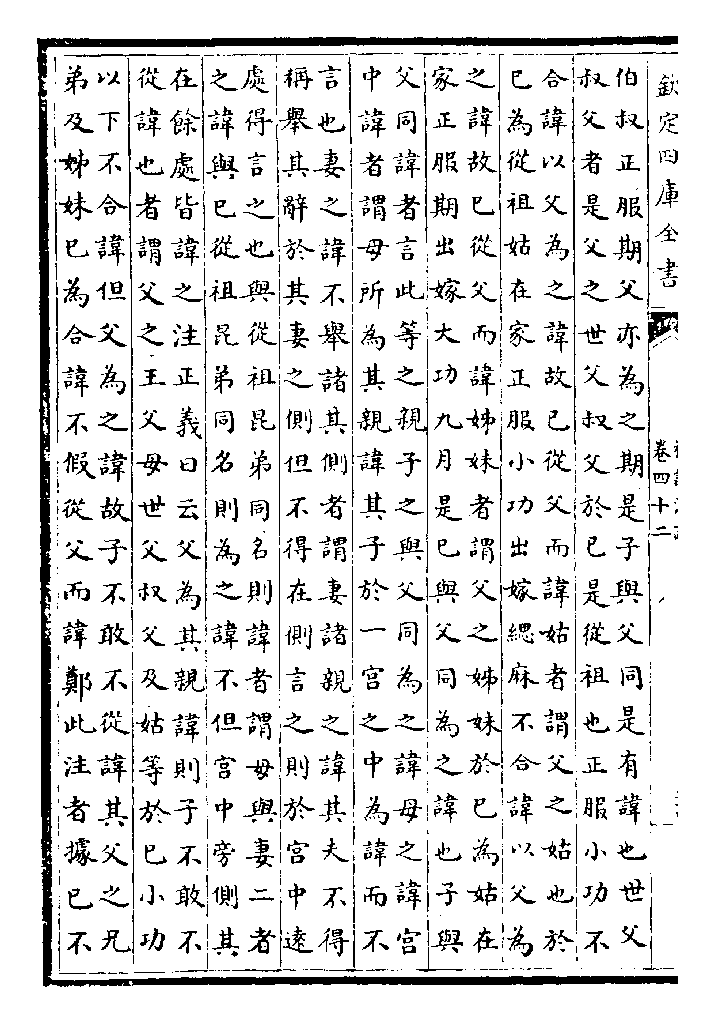 欽定四庫全書
卷四十二
伯叔正服期父亦為之期是子與父同是有諱也世父
叔父者是父之世父叔父於已是從祖也正服小功不
合諱以父為之諱故已從父而諱姑者謂父之姑也於
已為從祖姑在家正服小功出嫁緦麻不合諱以父為
之諱故已從父而諱姊妹者謂父之姊妹於已為姑在
家正服期出嫁大功九月是已與父同為之諱也子與
父同諱者言此等之親子之與父同為之諱母之諱宮
中諱者謂母所為其親諱其子於一宮之中為諱而不
言也妻之諱不舉諸其側者謂妻諸親之諱其夫不得
稱舉其辭於其妻之側但不得在側言之則於宮中逺
處得言之也與從祖昆弟同名則諱者謂母與妻二者
之諱與已從祖昆弟同名則為之諱不但宮中旁側其
在餘處皆諱之注正義曰云父為其親諱則子不敢不
從諱也者謂父之王父母世父叔父及姑等於已小功
以下不合諱但父為之諱故子不敢不從諱其父之兄
弟及姊妹已為合諱不假從父而諱鄭此注者據已不